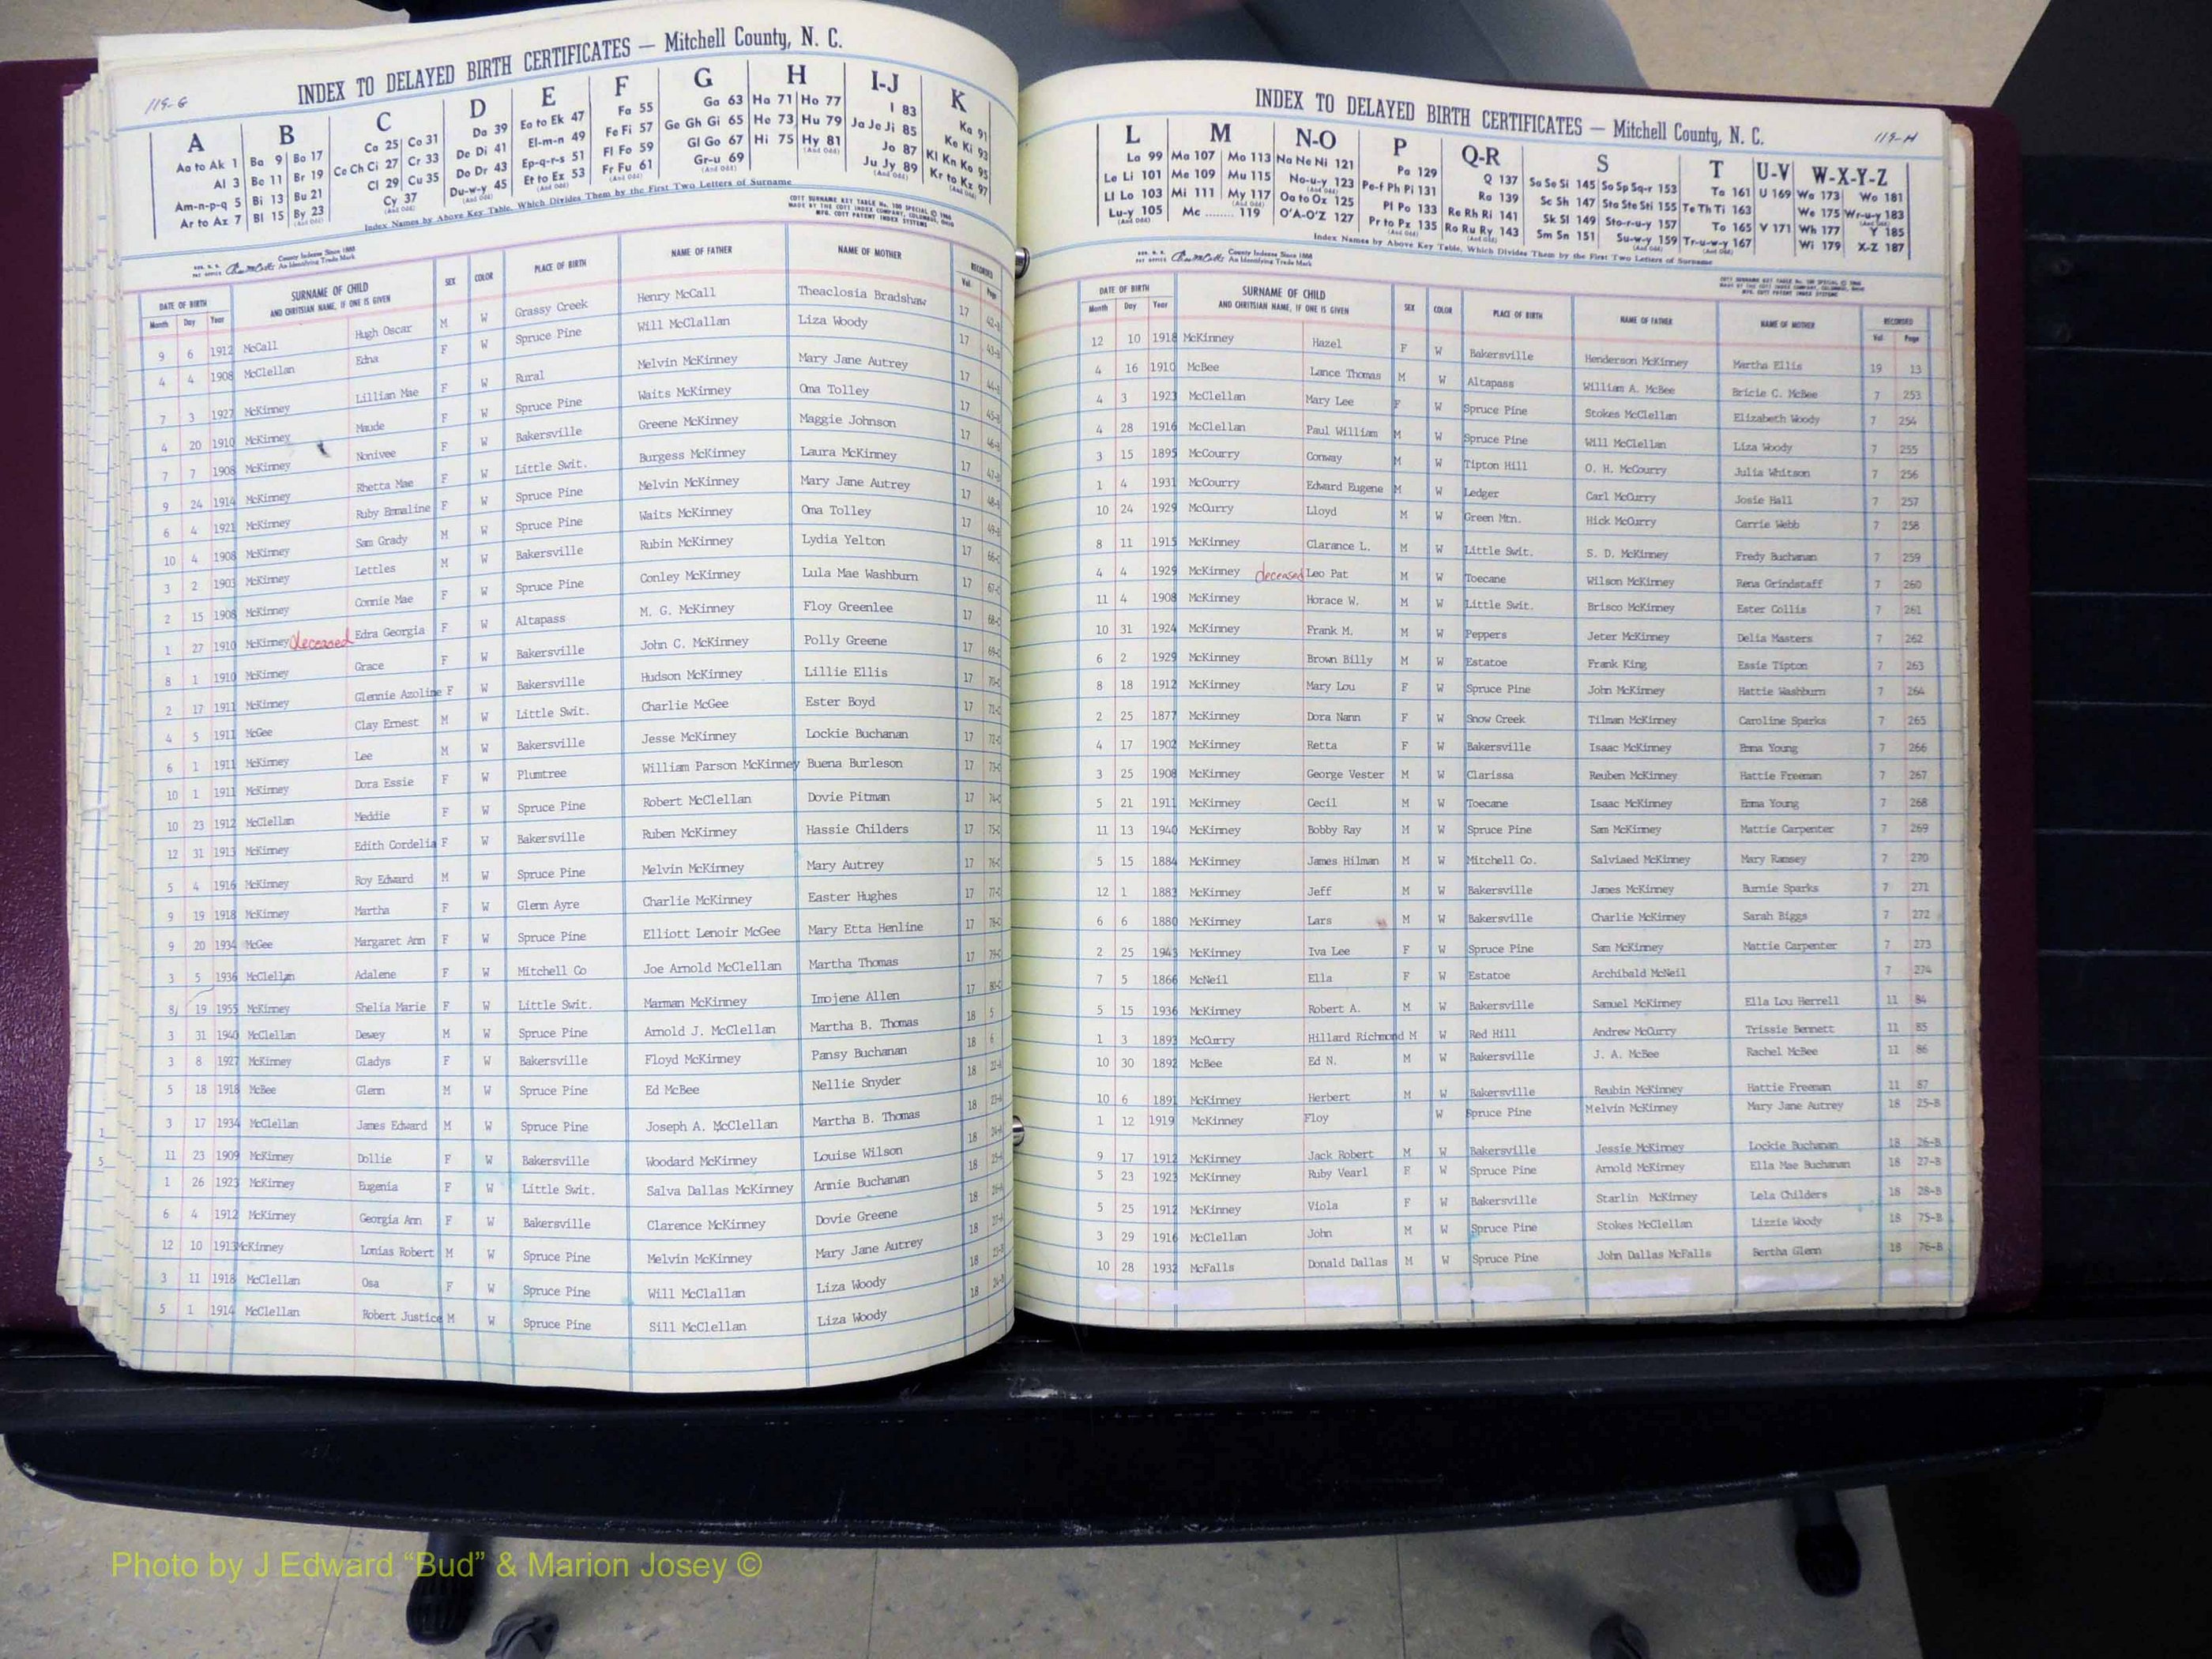 119-G
INDEX TO DELAYED BIRTH CERTIFICATES — Mitchell County, N. C.
A B C D E F G H I-J K
Aa to Ak 1 Ba 9 Bo 17 Ca 25 Co 31 Da 39 Ea to Ek 47 Fa 55 Ga 63 Ha 71 Ho 77 I 83 Ka 91
Al 3 Be 11 Br 19 Ce Ch Ci 27 Cr 33 De Di 41 El-m-n 49 Fe Fi 57 Ge Gh Gi 65 He 73 Hu 79 Ja Je Ji 85 Ke Ki 93
Am-n-p-q 5 Bi 13 Bu 21 Cl 29 Cu 35 Do Dr 43 Ep-q-r-s 51 Fl Fo 59 Gl Go 67 Hi 75 Hy 81 Jo 87 Kl Kn Ko 95
Ar to Az 7 Bl 15 By 23 Cy 37 Du-w-y 45 Et to Ez 53 Fr Fu 61 Gr-u 69 Ju Jy 89 Kr to Kz 97
Index Names by Above Key Table, Which Divides Them by the First Two Letters of Surname
County Indexes Since 1888
An Identifying Trade Mark
DATE OF BIRTH SURNAME OF CHILD SEX COLOR PLACE OF BIRTH NAME OF FATHER NAME OF MOTHER RECORDED
Month Day Year AND CHRITSIAN NAME, IF ONE IS GIVEN Vol. Page
9 6 1912 McCall Hugh Oscar M W Grassy Creek Henry McCall Theaclosia Bradshaw 17 42-B
4 4 1908 McClellan Edna F W Spruce Pine Will McClallan Liza Woody 17 43-B
7 3 1927 McKinney Lillian Mae F W Rural Melvin McKinney Mary Jane Autrey 17 44-B
4 20 1910 McKinney Maude F W Spruce Pine Waits McKinney Oma Tolley 17 45-B
7 7 1908 McKinney Nonivee F W Bakersville Greene McKinney Maggie Johnson 17 46-B
9 24 1914 McKinney Rhetta Mae F W Little Swit. Burgess McKinney Laura McKinney 17 47-B
6 4 1921 McKinney Ruby Emmaline F W Spruce Pine Melvin McKinney Mary Jane Autrey 17 48-B
10 4 1908 McKinney Sam Grady M W Spruce Pine Waits McKinney Oma Tolley 17 49-B
3 2 1903 McKinney Lettles M W Bakersville Rubin McKinney Lydia Yelton 17 66-C
2 15 1908 McKinney Connie Mae F W Spruce Pine Conley McKinney Lula Mae Washburn 17 67-C
1 27 1910 McKinney deceased Edra Georgia F W Altapass M. G. McKinney Floy Greenlee 17 68-C
8 1 1910 McKinney Grace F W Bakersville John C. McKinney Polly Greene 17 69-C
2 17 1911 McKinney Glennie Azoline F W Bakersville Hudson McKinney Lillie Ellis 17 70-C
4 5 1911 McGee Clay Ernest M W Little Swit. Charlie McGee Ester Boyd 17 71-C
6 1 1911 McKinney Lee M W Bakersville Jesse McKinney Lockie Buchanan 17 72-C
10 1 1911 McKinney Dora Essie F W Plumtree William Parson McKinney Buena Burleson 17 73-C
10 23 1912 McClellan Meddie F W Spruce Pine Robert McClellan Dovie Pitman 17 74-C
12 31 1913 McKinney Edith Cordelia F W Bakersville Ruben McKinney Hassie Childers 17 75-C
5 4 1916 McKinney Roy Edward M W Spruce Pine Melvin McKinney Mary Autrey 17 76-C
9 19 1918 McKinney Martha F W Glenn Ayre Charlie McKinney Easter Hughes 17 77-C
9 20 1934 McGee Margaret Ann F W Spruce Pine Elliott Lenoir McGee Mary Etta Henline 17 78-C
3 5 1936 McClellan Adalene F W Mitchell Co Joe Arnold McClellan Martha Thomas 17 79-C
8 19 1955 McKinney Shelia Marie F W Little Swit. Marman McKinney Imojene Allen 17 80-C
3 31 1940 McClellan Dewey M W Spruce Pine Arnold J. McClellan Martha B. Thomas 18 5
3 8 1927 McKinney Gladys F W Bakersville Floyd McKinney Pansy Buchanan 18 6
5 18 1918 McBee Glenn M W Spruce Pine Ed McBee Nellie Snyder 18 22-A
3 17 1934 McClellan James Edward M W Spruce Pine Joseph A. McClellan Martha B. Thomas 18 23-A
11 23 1909 McKinney Dollie F W Bakersville Woodard McKinney Louise Wilson 18 24-A
1 26 1923 McKinney Eugenia F W Little Swit. Salva Dallas McKinney Annie Buchanan 18 25-A
6 4 1912 McKinney Georgia Ann F W Bakersville Clarence McKinney Dovie Greene 18 26-A
12 10 1913 McKinney Lonias Robert M W Spruce Pine Melvin McKinney Mary Jane Autrey 18 27-A
3 11 1918 McClellan Osa F W Spruce Pine Will McClallan Liza Woody 18 23-B
5 1 1914 McClellan Robert Justice M W Spruce Pine Sill McClellan Liza Woody 18 24-B
119-H
INDEX TO DELAYED BIRTH CERTIFICATES — Mitchell County, N. C.
L M N-O P Q-R S T U-V W-X-Y-Z
La 99 Ma 107 Mo 113 Na Ne Ni 121 Pa 129 Q 137 Sa Se Si 145 So Sp Sq-r 153 Ta 161 U 169 Wa 173 Wo 181
Le Li 101 Me 109 Mu 115 No-u-y 123 Pe-f Ph Pi 131 Ra 139 Sc Sh 147 Sta Ste Sti 155 Te Th Ti 163 We 175 Wr-u-y 183
Ll Lo 103 Mi 111 My 117 Oa to Ox 125 Pl Po 133 Re Rh Ri 141 Sk Sl 149 Sto-r-u-y 157 To 165 V 171 Wh 177 Y 185
Lu-y 105 Mc ........ 119 O'A-O'Z 127 Pr to Pz 135 Ro Ru Ry 143 Sm Sn 151 Su-w-y 159 Tr-u-w-y 167 Wi 179 X-Z 187
Index Names by Above Key Table, Which Divides Them by the First Two Letters of Surname
County Indexes Since 1888
An Identifying Trade Mark
DATE OF BIRTH SURNAME OF CHILD SEX COLOR PLACE OF BIRTH NAME OF FATHER NAME OF MOTHER RECORDED
Month Day Year AND CHRITSIAN NAME, IF ONE IS GIVEN Vol. Page
12 10 1918 McKinney Hazel F W Bakersville Henderson McKinney Martha Ellis 19 13
4 16 1910 McBee Lance Thomas M W Altapass William A. McBee Bricie C. McBee 7 253
4 3 1923 McClellan Mary Lee F W Spruce Pine Stokes McClellan Elizabeth Woody 7 254
4 28 1916 McClellan Paul William M W Spruce Pine Will McClellan Liza Woody 7 255
3 15 1895 McCourry Conway M W Tipton Hill O. H. McCourry Julia Whitson 7 256
1 4 1931 McCourry Edward Eugene M W Ledger Carl McCurry Josie Hall 7 257
10 24 1929 McCurry Lloyd M W Green Mtn. Hick McCurry Carrie Webb 7 258
8 11 1915 McKinney Clarance L. M W Little Swit. S. D. McKinney Fredy Buchanan 7 259
4 4 1929 McKinney deceased Leo Pat M W Toecane Wilson McKinney Rena Grindstaff 7 260
11 4 1908 McKinney Horace W. M W Little Swit. Brisco McKinney Ester Collis 7 261
10 31 1924 McKinney Frank M. M W Peppers Jeter McKinney Delia Masters 7 262
6 2 1929 McKinney Brown Billy M W Estatoe Frank King Essie Tipton 7 263
8 18 1912 McKinney Mary Lou F W Spruce Pine John McKinney Hattie Washburn 7 264
2 25 1877 McKinney Dora Nann F W Snow Creek Tilman McKinney Caroline Sparks 7 265
4 17 1902 McKinney Retta F W Bakersville Isaac McKinney Emma Young 7 266
3 25 1908 McKinney George Vester M W Clarissa Reuben McKinney Hattie Freeman 7 267
5 21 1911 McKinney Cecil M W Toecane Isaac McKinney Emma Young 7 268
11 13 1940 McKinney Bobby Ray M W Spruce Pine Sam McKinney Mattie Carpenter 7 269
5 15 1884 McKinney James Hilman M W Mitchell Co. Salvised McKinney Mary Ramsey 7 270
12 1 1883 McKinney Jeff M W Bakersville James McKinney Burnie Sparks 7 271
6 6 1880 McKinney Lars M W Bakersville Charlie McKinney Sarah Biggs 7 272
2 25 1943 McKinney Iva Lee F W Spruce Pine Sam McKinney Mattie Carpenter 7 273
7 5 1866 McNeil Ella F W Estatoe Archibald McNeil 7 274
5 15 1936 McKinney Robert A. M W Bakersville Samuel McKinney Ella Lou Herrell 11 84
1 3 1893 McCurry Hillard Richmond M W Red Hill Andrew McCurry Trissie Bennett 11 85
10 30 1892 McBee Ed N. M W Bakersville J. A. McBee Rachel McBee 11 86
10 6 1891 McKinney Herbert M W Bakersville Reubin McKinney Hattie Freeman 11 87
1 12 1919 McKinney Floy W Spruce Pine Melvin McKinney Mary Jane Autrey 18 25-B
9 17 1912 McKinney Jack Robert M W Bakersville Jessie McKinney Lockie Buchanan 18 26-B
5 23 1923 McKinney Ruby Vearl F W Spruce Pine Arnold McKinney Ella Mae Buchanan 18 27-B
5 25 1912 McKinney Viola F W Bakersville Starlin McKinney Lela Childers 18 28-B
3 29 1916 McClellan John M W Spruce Pine Stokes McClellan Lizzie Woody 18 75-B
10 28 1932 McFalls Donald Dallas M W Spruce Pine John Dallas McFalls Bertha Glenn 18 76-B
Photo by J Edward “Bud” & Marion Josey ©